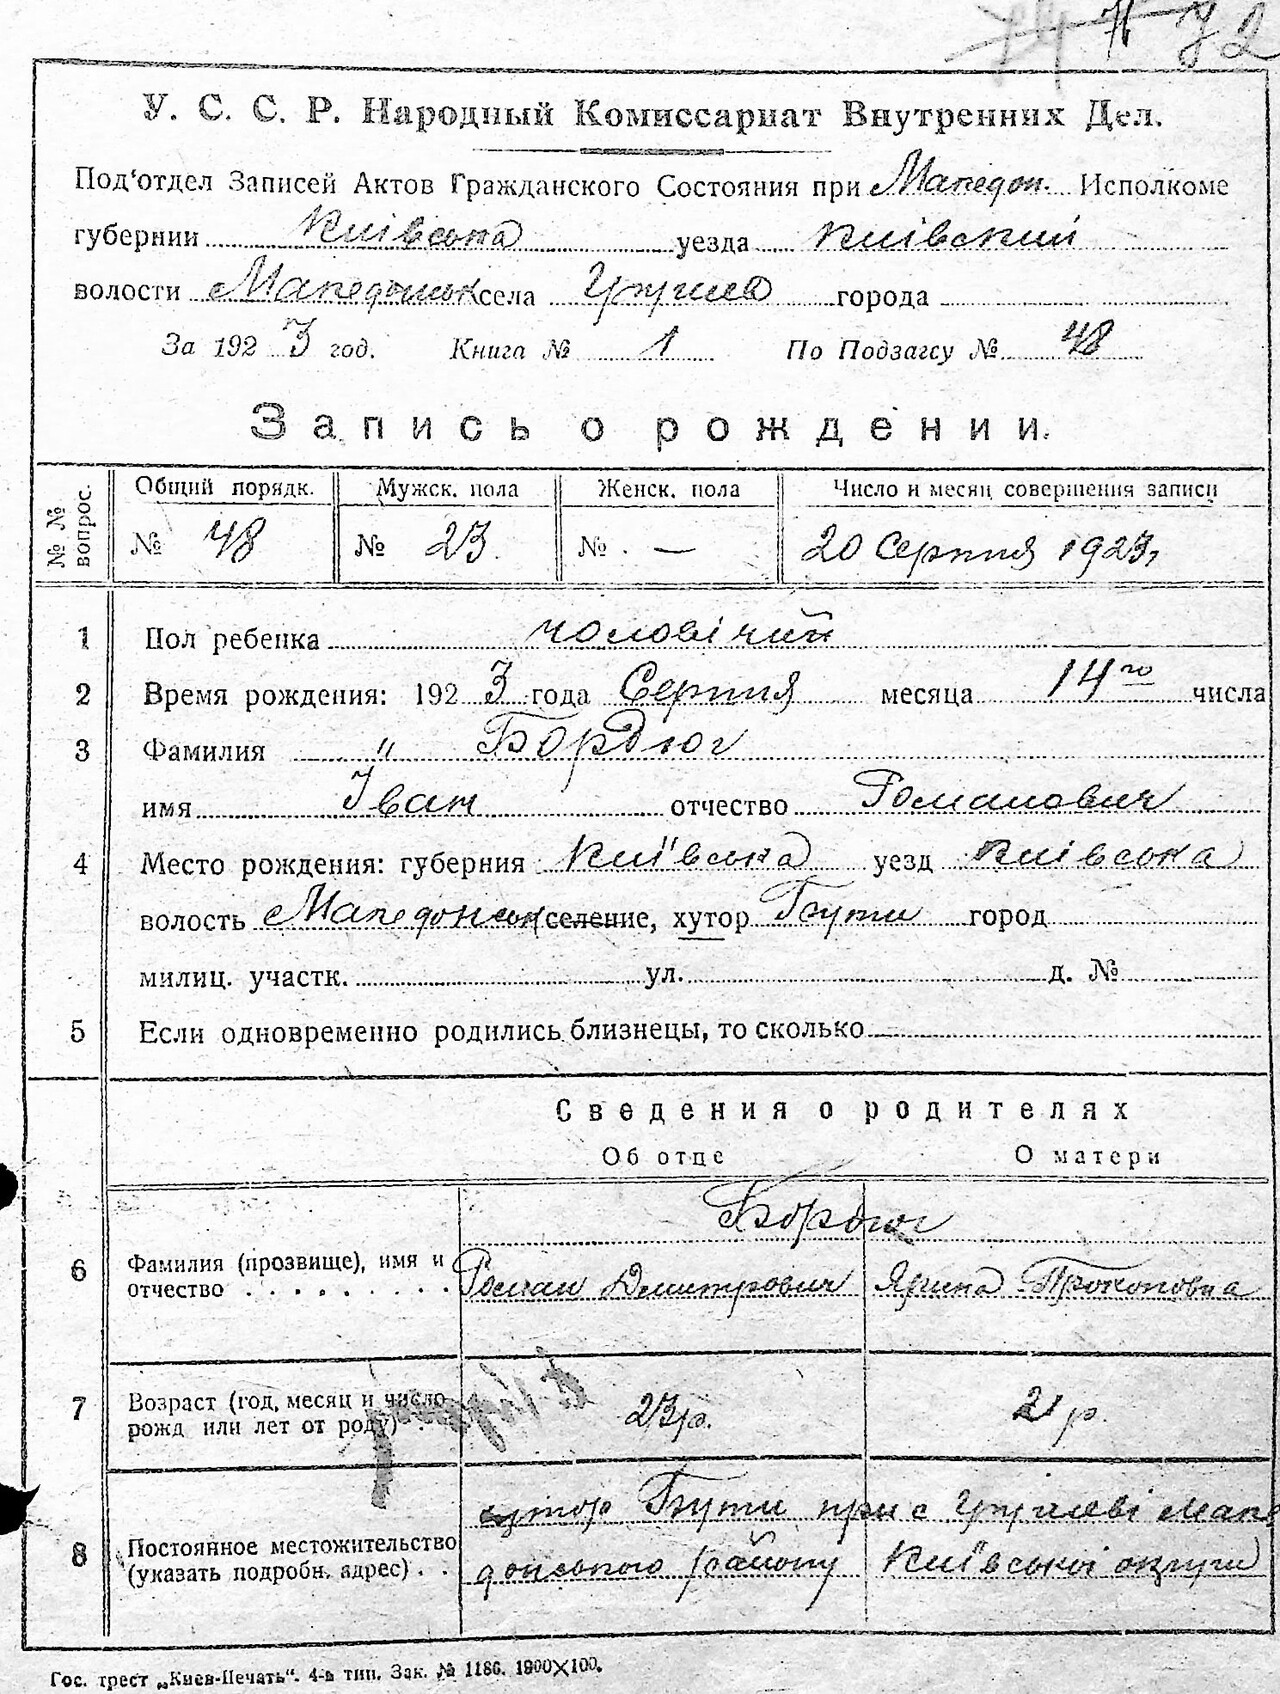 72
У. С. С. Р. Народный Комиссариат Внутренних Дел.
Под'отдел Записей Актов Гражданского Состояния при Македон. Исполкоме
губернии Київська уезда Київский
волости Македонськ села Гусачев города
За 1923 год. Книга № 1 По Подзагсу № 48
Запись о рождении.
№ № вопрос.
Общий порядк. Мужск. пола Женск. пола Число и месяц совершения записи
№ 48 № 23. № . — 20 Серпня 1923
1 Пол ребенка чоловічий
2 Время рождения: 1923 года Серпня месяца 14го числа
3 Фамилия " Бордюг
имя Іван отчество Романович
4 Место рождения: губерния Київська уезд Київська
волость Македонськ селение, хутор Бути город
милиц. участк. ул. д. №
5 Если одновременно родились близнецы, то сколько —
Сведения о родителях
Об отце О матери
Бордюг
6 Фамилия (прозвище), имя и
отчество . . . . . . . . . Роман Дмитрович Ярина Прокоповна
7 Возраст (год, месяц и число
рожд или лет от роду) . 23 р. 21 р.
хутор Бути при с Маке
8 Постоянное местожительство
(указать подробн. адрес) . . донського району Київської округи
Гос. трест „Киев-Печать“. 4-я тип. Зак. № 1186. 1900×100.